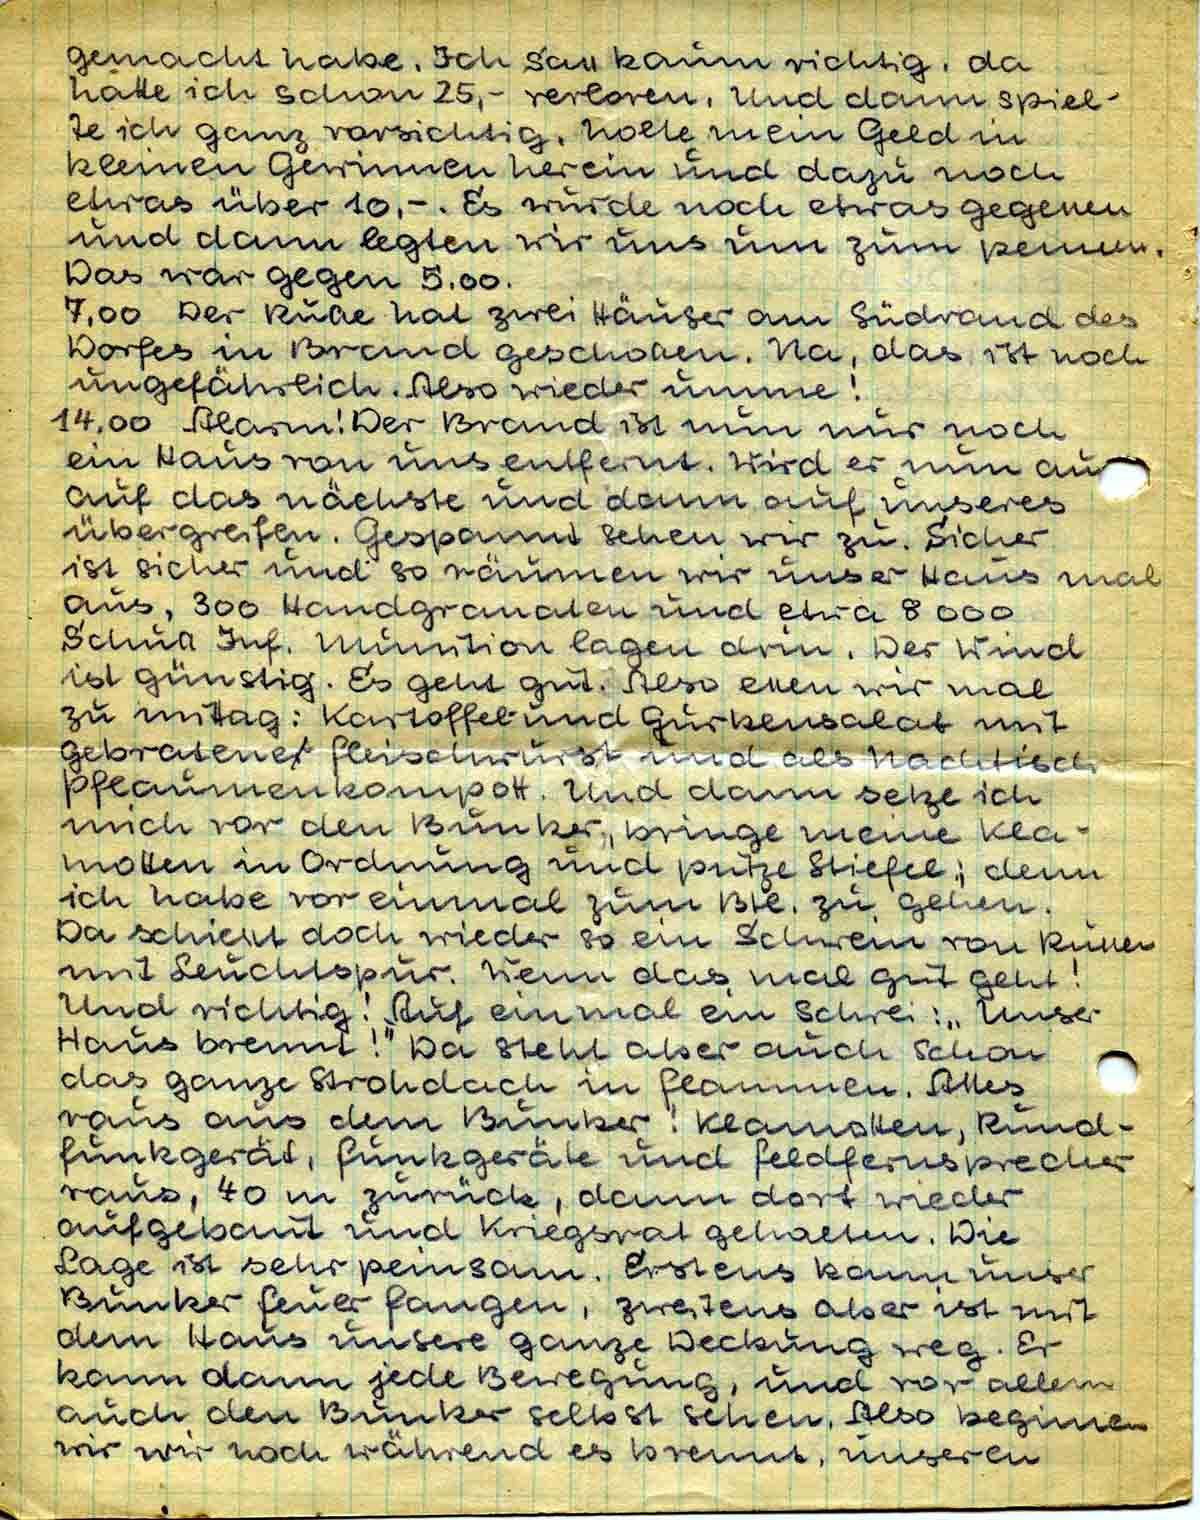 gemacht habe. Ich saß kaum richtig, da
hatte ich schon 25,- verloren. Und dann spiel-
te ich ganz vorsichtig, holte mein Geld in
kleinen Gewinnen herein und dazu noch
etwas über 10,-. Es wurde noch etwas gegessen
und dann legten wir uns um zum pennen.
Das war gegen 5.00.
7,00 Der Ruße hat zwei Häuser am Südrand des
Dorfes in Brand geschossen. Na, das ist noch
ungefährlich. Also wieder umme!
14,00 Alarm! Der Brand ist nun nur noch
ein Haus von uns entfernt. Wird er nun
auf das nächste und dann auf unseres
übergreifen. Gespannt sehen wir zu. Sicher
ist sicher und so räumen wir unser Haus mal
aus, 300 Handgranaten und etwa 8 000
Schuß Inf. Munition lagen drin. Der Wind
ist günstig. Es geht gut. Also essen wir mal
zu mittag: Kartoffel- und Gurkensalat mit
gebratener Fleischwurst und als Nachtisch
Pflaumenkompott. Und dann setze ich
mich vor den Bunker, bringe meine Kla-
motten in Ordnung und putze Stiefel; denn
ich habe vor einmal zum Btl. zu gehen.
Da schießt doch wieder so ein Schwein von Russen
mit Leuchtspur. Wenn das mal gut geht!
Und richtig! Auf einmal ein Schrei: „Unser
Haus brennt!" Da steht aber auch schon
das ganze Strohdach in Flammen. Alles
raus aus dem Bunker! Klamotten, Rund-
funkgerät, Funkgeräte und Feldfernsprecher
raus, 40 m zurück, dann dort wieder
aufgebaut und Kriegsrat gehalten. Die
Lage ist sehr peinsam. Erstens kann unser
Bunker Feuer fangen, zweitens aber ist mit
dem Haus unsere ganze Deckung weg. Er
kann dann jede Bewegung, und vor allem
auch den Bunker selbst sehen. Also beginnen
wir wir noch während es brennt, unseren